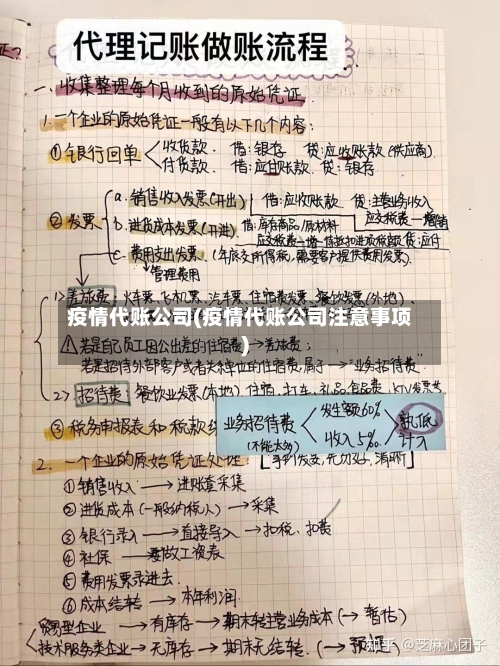 代理记账做账流程
一、收集整理每个月收到的原始凭证
1.一个企业的原始凭证一般有以下几个内容:
①银行回单
收货款. 借:银存 贷:应收账款(供应商).
付货款. 借:应付账款. 贷:银存
②发票
a.销售收入发票(开出) 借:应收账款 贷:主营业务收入
应交税费—增销
b.进货成本发票(开进) 借:库存商品/原材料
应交税费—增 待抵扣进项税额 贷:应付
c.费用支出发票.(年底交所得税,需要客户提供费用发票).
管理费用
1>差旅费:火车票、飞机票、汽车票、住宿费发票、餐饮发票(外地)、
疫情代账公司(疫情代账公司注意事项
)
若是自己员工因公出差的住宿费→差旅费;
若是招待外部客户或者关系单位的住宿费,属于→"业务招待费"
2>招待费:餐饮业发票(本地)住宿、打车、礼品、食品费、KTV发票等
③税务申报表和税款
业务招待费
(不能太多)
发生额60%
收入5‰.
孰低
计入
2.一个企业的原始凭证处理
①销售收入→进账套采集
②进货成本(一般纳税人)→采集
③银行录入→直接导入→扣税、扣费
④社保→要做工资表
⑤费用发票录进去.
⑥成本结转→本年利润.
贸易型企业→有库存→期末转主营业务成本(→暂估)
技术服务类企业→无库存→期末无结转.(→预提)
知乎 @芝麻心团子